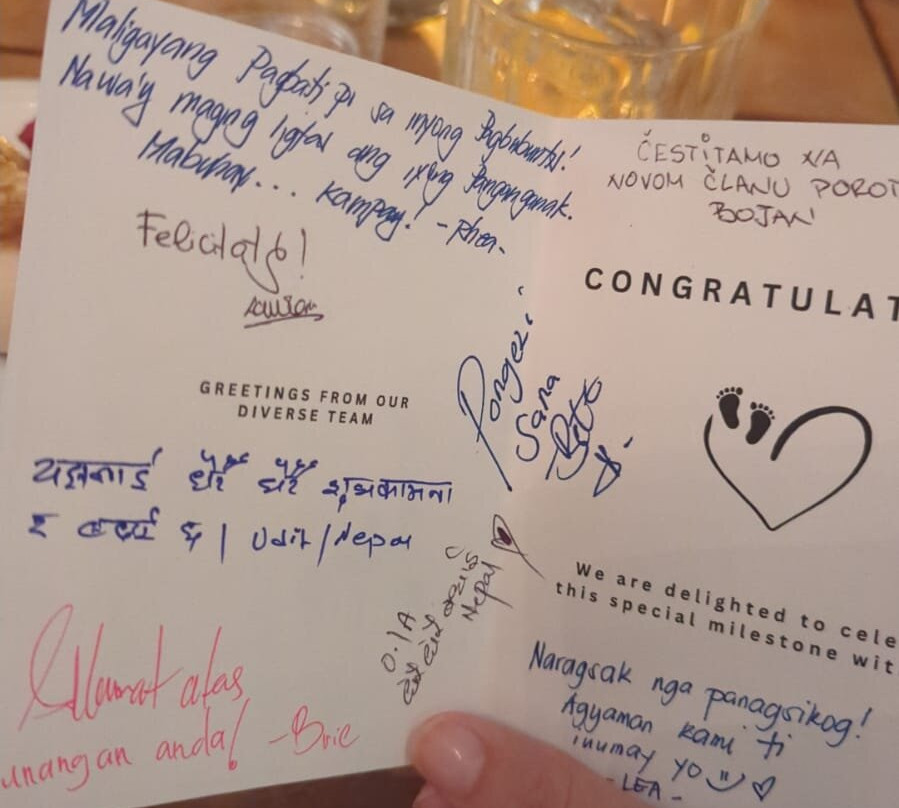 Maligayang Pagbati po sa inyong Pagbubuntis!
Nawa'y maging ligtas ang iyong Panganganak.
Mabuhay... Kampay! -Rhea-
Felicitați!
GREETINGS FROM OUR
DIVERSE TEAM
धेरै धेरै शुभकामना
र बधाई छ | Udit/Nepal
Selamat atas
unangan anda! -Brie
Pongezi
Sana
Nepal
ČESTITAMO NA
NOVOM ČLANU POROD
BOJAN
CONGRATULAT
We are delighted to cele
this special milestone wit
Naragsak nga panagsikog!
Agyaman kami ti
inumay yo
- LEA -